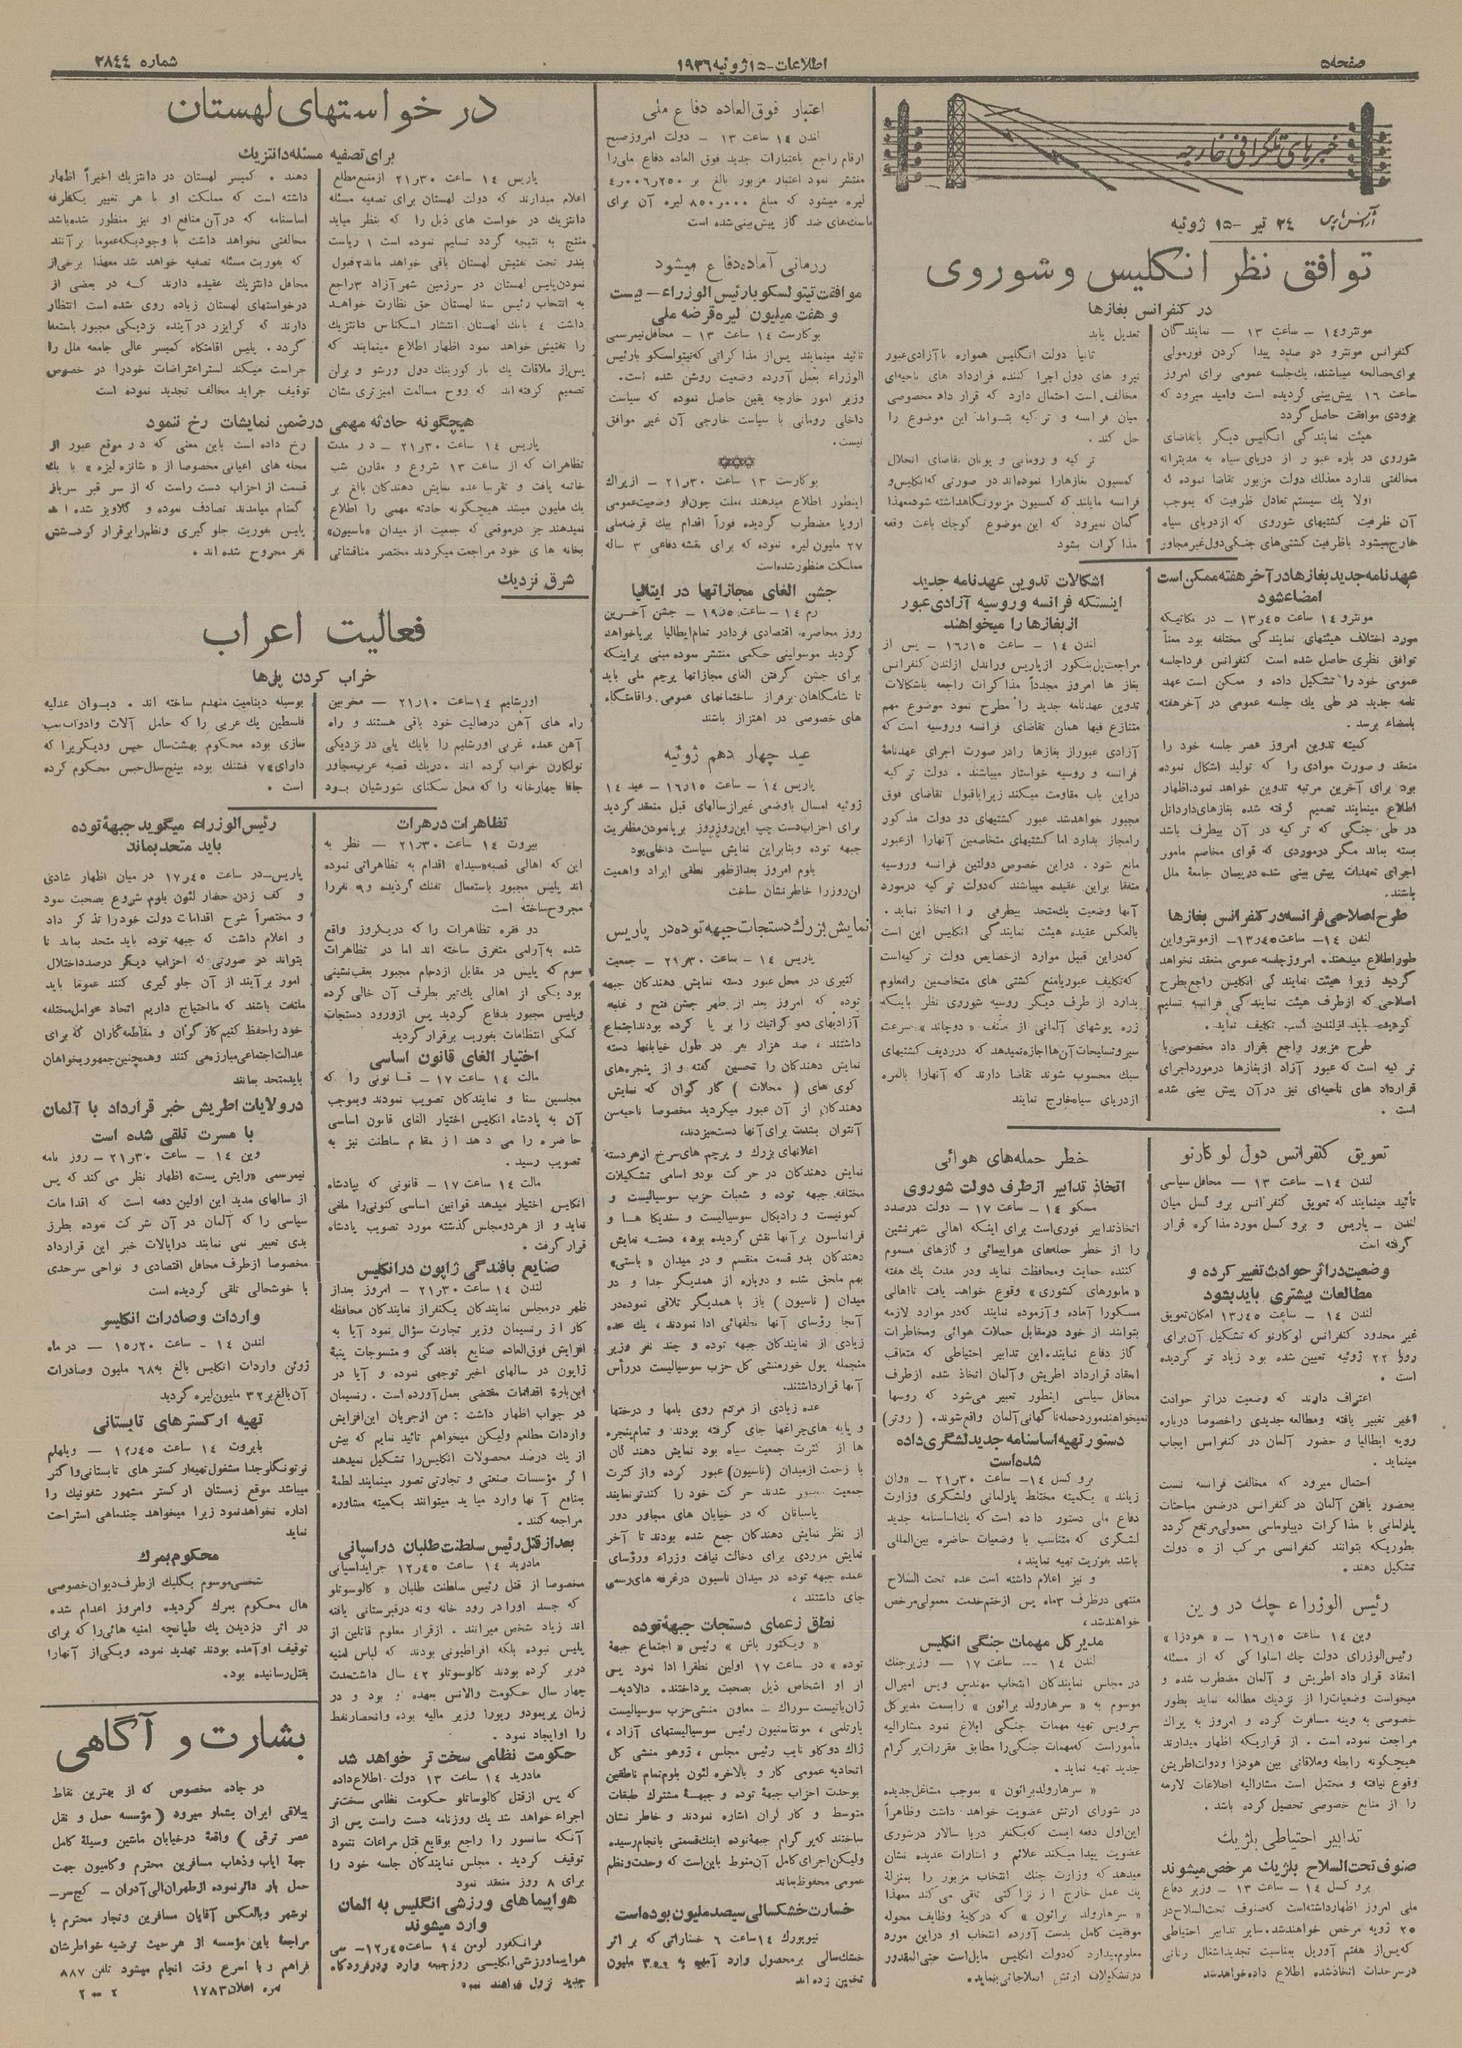 صفحه ۵
اطلاعات - ۱۵ ژوئیه ۱۹۳۶
شماره ۲۸۴۴
خبرهای تلگرافی خارجه
آژانس پارس
۲۴ تیر - ۱۵ ژوئیه
توافق نظر انگلیس و شوروی
در کنفرانس بغازها
مونترو ۱۴ - ساعت ۱۳ - نمایندگان
کنفرانس مونترو در صدد پیدا کردن فورمولی
برای مصالحه میباشند، یک جلسه عمومی برای امروز
ساعت ۱۶ پیش بینی گردیده است وامید میرود که
بزودی موافقت حاصل گردد
هیئت نمایندگی انگلیس دیگر باتقاضای
شوروی در باره عبور از دریای سیاه به مدیترانه
مخالفتی ندارد معذلک دولت مزبور تقاضا نموده که
اولا یک سیستم تعادل ظرفیت که بموجب
آن ظرفیت کشتیهای شوروی که ازدریای سیاه
خارج میشود باظرفیت کشتی‌های جنگی دول غیرمجاور
تعدیل یابد
ثانیاً دولت انگلیس همواره با آزادی عبور
نیرو های دول اجرا کننده قرارداد های ناحیه‌ای
مخالف است احتمال دارد که قرار داد مخصوصی
میان فرانسه و ترکیه بتواند این موضوع را
حل کند.
ترکیه و رومانی و یونان تقاضای انحلال
کمیسیون بغازهارا نموده‌اند در صورتی که انگلیس و
فرانسه مایلند که کمسیون مزبور نگاهداشته شود معهذا
گمان نمیرود که این موضوع کوچک باعث وقفه
مذاکرات بشود
عهدنامه جدید بغازها در آخر هفته ممکن است
امضاء شود
مونترو ۱۴ ساعت ۱۳ر۴۵ - در نکاتیکه
مورد اختلاف هیئتهای نمایندگی مختلفه بود معناً
توافق نظری حاصل شده است کنفرانس فردا جلسه
عمومی خود را تشکیل داده و ممکن است عهد
نامه جدید در طی یک جلسه عمومی در آخر هفته
بامضاء برسد.
کمیته تدوین امروز عصر جلسه خود را
منعقد و صورت موادی را که تولید اشکال نموده
بود برای آخرین مرتبه تدوین خواهد نمود. اظهار
اطلاع مینمایند تصمیم گرفته شده بغازهای داردانل
در طی جنگی که ترکیه در آن بیطرف باشد
بسته بماند مگر درموردی که قوای مخاصم مامور
اجرای تعهدات پیش بینی شده در پیمان جامعۀ ملل
باشند.
طرح اصلاحی فرانسه در کنفرانس بغازها
لندن ۱۴ - ساعت ۱۳ر۴۵ - ازمونترو این
طور اطلاع میدهند. امروز جلسه عمومی منعقد نخواهد
گردید زیرا هیئت نمایندگی انگلیس راجع بطرح
اصلاحی که ازطرف هیئت نمایندگی فرانسه تسلیم
گردیده باید از لندن کسب تکلیف نماید.
طرح مزبور راجع بقرار داد مخصوصی با
ترکیه است که عبور آزاد ازبغازها درمورد اجرای
قرارداد های ناحیه‌ای نیز در آن پیش بینی شده
است.
اشکالات تدوین عهدنامه جدید
اینستکه فرانسه وروسیه آزادی عبور
از بغازها را میخواهند
لندن ۱۴ - ساعت ۱۶ر۱۵ - پس از
مراجعت پل بنکور از پاریس وراندل ازلندن کنفرانس
بغاز ها امروز مجدداً مذاکرات راجعه باشکالات
تدوین عهدنامه جدید را مطرح نمود موضوع مهم
متنازع فیها همان تقاضای فرانسه وروسیه است که
آزادی عبور از بغازها رادر صورت اجرای عهدنامۀ
فرانسه و روسیه خواستار میباشند. دولت ترکیه
دراین باب مقاومت میکند زیرا باقبول تقاضای فوق
مجبور خواهدشد عبور کشتیهای دو دولت مذکور
رامجاز بدارد اما کشتیهای متخاصمین آنهارا ازعبور
مانع شود. دراین خصوص دولتین فرانسه وروسیه
متفقا براین عقیده میباشند که دولت ترکیه درمورد
آنها وضعیت یک متحد بیطرفی را اتخاذ نماید.
بالعکس عقیده هیئت نمایندگی انگلیس این است
که دراین قبیل موارد ازخصایص دولت ترکیه است
که تکلیف عبور یامنع کشتی های متخاصمین رامعلوم
بدارد از طرف دیگر روسیه شوروی نظر باینکه
زره پوشهای آلمانی از صنف «دوچلند» سرعت
سیر وتسلیحات آن‌ها اجازه نمیدهد که درردیف کشتیهای
سبک محسوب شوند تقاضا دارند که آنهارا بالمره
ازدریای سیاه خارج نمایند
تعویق کنفرانس دول لوکارنو
لندن ۱۴ - ساعت ۱۳ - محافل سیاسی
تأئید مینمایند که تعویق کنفرانس بروکسل میان
لندن - پاریس و بروکسل مورد مذاکره قرار
گرفته است
وضعیت در اثر حوادث تغییر کرده و
مطالعات بیشتری باید بشود
لندن ۱۴ - ساعت ۱۳ر۴۵ امکان تعویق
غیر محدود کنفرانس لوکارنو که تشکیل آن برای
روز ۲۲ ژوئیه تعیین شده بود زیاد تر گردیده
است.
اعتراف دارند که وضعیت دراثر حوادث
اخیر تغییر یافته ومطالعه جدیدی راخصوصا درباره
رویه ایطالیا و حضور آلمان در کنفرانس ایجاب
مینماید.
احتمال میرود که مخالفت فرانسه نسبت
بحضور یافتن آلمان در کنفرانس درضمن مباحثات
پارلمانی یا مذاکرات دیپلوماسی معمولی مرتفع گردد
بطوریکه بتوانند کنفرانسی مرکب از ۵ دولت
تشکیل دهند.
رئیس الوزراء چک در وین
وین ۱۴ ساعت ۱۶ر۱۵ - «هودزا»
رئیس الوزرای دولت چک اسلواکی که از مسئله
انعقاد قرارداد اطریش و آلمان مضطرب شده و
میخواست وضعیات را از نزدیک مطالعه نماید بطور
خصوصی به وینه مسافرت کرده و امروز به پراک
مراجعت نموده است. از قراریکه اظهار میدارند
هیچگونه رابطه وملاقاتی بین هودزا ودولت اطریش
وقوع نیافته و محتمل است مشارالیه اطلاعات لازمه
را از منابع خصوصی تحصیل کرده باشد.
تدابیر احتیاطی بلژیک
صنوف تحت السلاح بلژیک مرخص میشوند
بروکسل ۱۴ - ساعت ۱۳ - وزیر دفاع
ملی امروز اظهار داشته است که صنوف تحت السلاح در
۲۵ ژویه مرخص خواهند شد. سایر تدابیر احتیاطی
که پس از هفتم آوریل بمناسبت تجدید اشغال رنانی
درسرحدات اتخاذ شده اطلاع داده خواهد شد
خطر حمله‌های هوائی
اتخاذ تدابیر از طرف دولت شوروی
مسکو ۱۴ - ساعت ۱۷ - دولت درصدد
اتخاذ تدابیر فوری است برای اینکه اهالی شهر نشین
را از خطر حمله‌های هواپیمائی و گازهای مسموم
کننده حمایت ومحافظت نماید ودر مدت یک هفته
«مانورهای کشوری» وقوع خواهد یافت تااهالی
مسکورا آماده وآزموده نمایند که در موارد لازمه
بتوانند از خود در مقابل حملات هوائی ومخاطرات
گاز دفاع نمایند. این تدابیر احتیاطی که متعاقب
انعقاد قرارداد اطریش و آلمان اتخاذ شده ازطرف
محافل سیاسی اینطور تعبیر می‌شود که روسها
نمیخواهند مورد حمله ناگهانی آلمان واقع شوند. (روتر)
دستور تهیه اساسنامه جدید لشگری داده
شده است
بروکسل ۱۴ - ساعت ۲۱ر۳۰ - «وان
زیلند» بکمیته مختلط پارلمانی ولشگری وزارت
دفاع ملی دستور داده است که یک اساسنامه جدید
لشگری که متناسب با وضعیات حاضره بین‌المللی
باشد بفوریت تهیه نمایند.
و نیز اعلام داشته است عده تحت السلاح
منتهی درظرف ۳ ماه پس از ختم خدمت معمولی مرخص
خواهند شد.
مدیر کل مهمات جنگی انگلیس
لندن ۱۴ - ساعت ۱۷ - وزیر جنگ
در مجلس نمایندگان انتخاب مهندس ویس امیرال
موسوم به «سرهارولد برائون» رابسمت مدیر کل
سرویس تهیه مهمات جنگی ابلاغ نمود مشارالیه
مأموراست که مهمات جنگی را مطابق مقررات پرگرام
جدید تهیه نماید.
«سرهارولد برائون» بموجب مشاغل جدیده
در شورای ارتش عضویت خواهد داشت وظاهراً
این اول دفعه ایست که یکنفر دریا سالار در شوری
عضویت پیدا میکند علائم و اشارات عدیده نشان
میدهد که وزارت جنگ انتخاب مزبور را بمنزله
یک عمل خارج از نزاکتی تلقی می‌کند معهذا
«سرهارولد برائون» که درکلیۀ وظایف محوله
موفقیت کامل بدست آورده انتخاب او دراین مورد
معلوم میدارد که دولت انگلیس مایل است حتی المقدور
در تشکیلات ارتش اصلاحاتی بنماید.
اعتبار فوق العاده دفاع ملی
لندن ۱۴ ساعت ۱۳ - دولت امروز صبح
ارقام راجع باعتبارات جدید فوق العاده دفاع ملی را
منتشر نمود اعتبار مزبور بالغ بر
لیره میشود که مبلغ ۸۵۰ر۰۰۰ لیره آن برای
ماسک‌های ضد گاز پیش بینی شده است
رومانی آماده دفاع میشود
موافقت تیتولسکو با رئیس الوزراء - بیست
و هفت میلیون لیره قرضه ملی
بوکارست ۱۴ ساعت ۱۳ - محافل نیمرسمی
تائید مینمایند پس از مذاکراتی که تیتولسکو بارئیس
الوزراء بعمل آورده وضعیت روشن شده است.
وزیر امور خارجه یقین حاصل نموده که سیاست
داخلی رومانی با سیاست خارجی آن غیر موافق
نیست.
بوکارست ۱۳ ساعت ۲۱ر۳۰ - از پراک
اینطور اطلاع میدهند بملت چون از وضعیت عمومی
اروپا مضطرب گردیده فوراً اقدام بیک قرضه ملی
۲۷ ملیون لیره نموده که برای نقشه دفاعی ۳ ساله
مملکت منظور شده است
جشن الغای مجازاتها در ایتالیا
رم ۱۴ - ساعت ۱۹ر۵ - جشن آخرین
روز محاصره اقتصادی فردا در تمام ایطالیا برپا خواهد
گردید موسولینی حکمی منتشر نموده مبنی براینکه
برای جشن گرفتن الغای مجازاتها پرچم ملی باید
تا شامگاهان برفراز ساختمانهای عمومی واقامتگاه
های خصوصی در اهتزاز باشند
عید چهاردهم ژوئیه
پاریس ۱۴ - ساعت ۱۶ر۱۵ - عید ۱۴
ژوئیه امسال باوضعی غیر از سالهای قبل منعقد گردید
برای احزاب دست چپ این روز روز برپا نمودن مظفریت
جبهه توده وبنابراین نمایش سیاست داخلی بود
بلوم امروز بعد از ظهر نطقی ایراد و اهمیت
این روز را خاطر نشان ساخت
نمایش بزرگ دستجات جبهه توده در پاریس
پاریس ۱۴ - ساعت ۲۱ر۳۰ - جمعیت
کثیری در محل عبور دسته نمایش دهندگان جبهه
توده که امروز بعد از ظهر جشن فتح و غلبه
آزادیهای دموکراتیک را بر پا کرده بودند اجتماع
داشتند، صد هزار نفر در طول خیابانها دسته
نمایش دهندگان را تحسین گفته و از پنجره‌های
کوی های (محلات) کارگران که نمایش
دهندگان از آن عبور میکردید مخصوصا ناحیه سن
آنتوان بشدت برای آنها دست میزدند.
اعلانهای بزرگ و پرچم های سرخ از هر دسته
نمایش دهندگان در حرکت بود و اسامی تشکیلات
مختلفه جبهه توده و شعبات حزب سوسیالیست و
کمونیست و رادیکال سوسیالیست و سندیکاها و
فراماسون برآنها نقش گردیده بود، دسته نمایش
دهندگان بدو قسمت منقسم و در میدان «باستی»
بهم ملحق شده و دوباره از همدیگر جدا و در
میدان (ناسیون) باز با همدیگر تلاقی نموده در
آنجا رؤسای آنها نطقهائی ادا نمودند، یک عده
زیادی از نمایندگان جبهه توده و چند نفر وزیر
منجمله پول فور منشی کل حزب سوسیالیست دررأس
آنها قرار داشتند.
عده زیادی از مردم روی بامها و درختها
و پایه های چراغها جای گرفته بودند و تمام پنجره
ها از کثرت جمعیت سیاه بود نمایش دهندگان
با زحمت از میدان (ناسیون) عبور کرده و از کثرت
جمعیت مجبور شدند حرکت خود را کندتر نمایند
پاسبانان که در خیابان های مجاور دور
از نظر نمایش دهندگان جمع شده بودند تا آخر
نمایش موردی برای دخالت نیافت وزراء ورؤسای
عمده جبهه توده در میدان ناسیون درغرفه های رسمی
جای داشتند.
نطق زعمای دستجات جبهۀ توده
«ویکتور باش» رئیس «اجتماع جبهۀ
توده» در ساعت ۱۷ اولین نطقرا ادا نمود پس
از او اشخاص ذیل بصحبت پرداختند. دالادیه -
ژان باتیست سوراک - معاون منشی حزب سوسیالیست
بارتلمی، مونتانیون رئیس سوسیالیستهای آزاد،
ژاک دوکلو نایب رئیس مجلس، ژوهو منشی کل
اتحادیه عمومی کار و بالاخره لئون بلوم تمام ناطقین
بوحدت احزاب جبهه توده و جبهۀ مشترک طبقات
متوسط و کارگران اشاره نمودند و خاطر نشان
ساختند که پرگرام جبهه توده اینک قسمتی بانجام رسیده
ولیکن اجرای کامل آن منوط باین است که وحدت و نظم
عمومی محفوظ بماند
خسارت خشکسالی سیصد ملیون بوده است
نیویورک ۱۴ ساعت ۶ خساراتی که بر اثر
خشک سالی برمحصول وارد آمده به ۳۰۰ ملیون
تخمین زده اند
در خواستهای لهستان
برای تصفیه مسئله دانتزیک
پاریس ۱۴ ساعت ۲۱ر۳۰ از منبع مطلع
اعلام میدارند که دولت لهستان برای تصفیه مسئله
دانتزیک در خواست های ذیل را که بنظر میاید
منتج به نتیجه گردد تسلیم نموده است ۱ ریاست
بندر تحت تفتیش لهستان باقی خواهد ماند ۲ قبول
نمودن پلیس لهستان در سرزمین شهر آزاد ۳ راجع
به انتخاب رئیس سنا لهستان حق نظارت خواهد
داشت ۴ بانک لهستان انتشار اسکناس دانتزیک
را تفتیش خواهد نمود اظهار اطلاع مینمایند که
پس از ملاقات یک بار گورینگ دول ورشو و برلن
تصمیم گرفته اند که روح مسالمت امیزتری نشان
دهند. کمیسر لهستان در دانتزیک اخیراً اظهار
داشته است که مملکت او با هر تغییر یکطرفه
اساسنامه که درآن منافع او نیز منظور شده باشد
مخالفتی نخواهد داشت با وجودیکه عموما برآنند
که بفوریت مسئله تصفیه خواهد شد معهذا برخی از
محافل دانتزیک عقیده دارند که در بعضی از
درخواستهای لهستان زیاده روی شده است انتظار
دارند که گرایزر در آینده نزدیکی مجبور باستعفا
گردد. پلیس اقامتگاه کمیسر عالی جامعه ملل را
حراست میکند لستر اعتراضات خودرا در خصوص
توقیف جراید مخالف تجدید نموده است
هیچگونه حادثه مهمی در ضمن نمایشات رخ ننمود
پاریس ۱۴ ساعت ۲۱ر۳۰ - در مدت
تظاهرات که از ساعت ۱۳ شروع و مقارن شب
خاتمه یافت و تقریبا عده نمایش دهندگان بالغ بر
یک ملیون میشد هیچگونه حادثه مهمی را اطلاع
نمیدهند جز درموقعی که جمعیت از میدان «ناسیون»
بخانه های خود مراجعت میکردند مختصر مناقشاتی
رخ داده است باین معنی که در موقع عبور از
محله های اعیانی مخصوصا از «شانزه لیزه» با یک
قسمت از احزاب دست راست که از سر قبر سرباز
گمنام میامدند تصادف نموده و گلاویز شده اند
پلیس بفوریت جلوگیری ونظم را برقرار کرد. شش
نفر مجروح شده اند.
شرق نزدیک
فعالیت اعراب
خراب کردن پل‌ها
اورشلیم ۱۴ ساعت ۲۱ر۱۰ - مخربین
راه های آهن درفعالیت خود باقی هستند و راه
آهن عمده غربی اورشلیم را بایک پلی در نزدیکی
تولکارن خراب کرده اند. دریک قصبه عرب مجاور
جافا چهارخانه را که محل سکنای شورشیان بود
بوسیله دینامیت منهدم ساخته اند. دیوان عدلیه
فلسطین یک عربی را که حامل آلات وادوات بمب
سازی بوده محکوم بهشت سال حبس و دیگریرا که
دارای ۷۴ فشنگ بوده بپنج سال حبس محکوم کرده
است.
تظاهرات در هرات
بیروت ۱۴ ساعت ۲۱ر۳۰ - نظر به
این که اهالی قصبه «سیدا» اقدام به تظاهراتی نموده
اند پلیس مجبور باستعمال تفنگ گردیده و ۹ نفر را
مجروح ساخته است
دو فقره تظاهرات را که دیروز واقع
شده به آرامی متفرق ساخته اند اما در تظاهرات
سوم که پلیس در مقابل ازدحام مجبور بعقب نشینی
بود یکی از اهالی یک تیر بطرف آن خالی کرده
وپلیس مجبور بدفاع گردید پس از ورود دستجات
کمکی انتظامات بفوریت برقرار گردید
اختیار الغای قانون اساسی
مالت ۱۴ ساعت ۱۷ - قانونی را که
مجلسین سنا و نمایندگان تصویب نمودند وبموجب
آن به پادشاه انگلیس اختیار الغای قانون اساسی
حاضره را می دهد از مقام سلطنت نیز به
تصویب رسید.
مالت ۱۴ ساعت ۱۷ - قانونی که بپادشاه
انگلیس اختیار میدهد قوانین اساسی کنونی را ملغی
نماید و از هر دو مجلس گذشته مورد تصویب پادشاه
قرار گرفت.
صنایع بافندگی ژاپون در انگلیس
لندن ۱۴ ساعت ۲۱ر۳۰ - امروز بعد از
ظهر درمجلس نمایندگان یکنفر از نمایندگان محافظه
کار از رنسیمان وزیر تجارت سؤال نمود آیا به
افزایش فوق العاده صنایع بافندگی و منسوجات پنبۀ
ژاپون در سالهای اخیر توجهی نموده و آیا در
این باره اقدامات مقتضی بعمل آورده است. رنسیمان
در جواب اظهار داشت: من از جریان این افزایش
واردات مطلعم ولیکن میخواهم تائید نمایم که بیش
از یک درصد محصولات انگلیس را تشکیل نمیدهد
اگر مؤسسات صنعتی و تجارتی تصور مینمایند لطمۀ
بمنافع آنها وارد میاید میتوانند بکمیته مشاوره
مراجعه کنند.
بعد از قتل رئیس سلطنت طلبان در اسپانی
مادرید ۱۴ ساعت ۱۲ر۴۵ جراید اسپانی
مخصوصا از قتل رئیس سلطنت طلبان «کالوسوتلو
که جسد اورا در رود خانه ونه درقبرستانی یافته
اند زیاد شخص میرانند. از قرار معلوم قاتلین از
پلیس نبوده بلکه افراطیونی بودند که لباس امنیه
دربر کرده بودند کالوسوتلو ۴۲ سال داشت مدت
چهار سال حکومت والانس بعهده او بود و در
زمان پریمودو ریورا وزیر مالیه بوده وانحصار نفط
را او ایجاد نمود.
حکومت نظامی سخت تر خواهد شد
مادرید ۱۴ ساعت ۱۳ دولت اطلاع داده
که پس از قتل کالوساتلو حکومت نظامی سخت تر
اجراء خواهد شد یک روزنامه دست راست پس از
آنکه سانسور را راجع بوقایع قتل مراعات ننمود
توقیف گردید. مجلس نمایندگان جلسه خود را
برای ۸ روز منعقد نمود
هواپیماهای ورزشی انگلیس به المان
وارد میشوند
فرانکفور لومن ۱۴ ساعت ۱۲ر۴۵ - سی
هواپیما ورزشی انگلیسی روز جمعه وارد ودر فرودگاه
جدید نزول خواهند نمود
رئیس الوزراء میگوید جبهۀ توده
باید متحد بماند
پاریس - در ساعت ۱۷ر۴۵ در میان اظهار شادی
و کف زدن حضار لئون بلوم شروع بصحبت نمود
و مختصراً شرح اقدامات دولت خود را تذکر داد
و اعلام داشت که جبهه توده باید متحد بماند تا
بتواند در صورتی که احزاب دیگر درصدد اختلال
امور برآیند از آن جلوگیری کنند عموما باید
ملتفت باشند که ما احتیاج داریم اتحاد عوامل مختلفه
خود را حفظ کنیم کارگران و مقاطعه کاران که برای
عدالت اجتماعی مبارزه می کنند وهمچنین جمهوریخواهان
باید متحد بمانند
در ولایات اطریش خبر قرارداد با آلمان
با مسرت تلقی شده است
وین ۱۴ - ساعت ۲۱ر۳۰ - روز نامه
نیمرسمی «رایش پست» اظهار نظر می کند که پس
از سالهای مدید این اولین دفعه است که اقدامات
سیاسی را که آلمان در آن شرکت نموده بطرز
بدی تعبیر نمی نمایند درایالات خبر این قرارداد
مخصوصا ازطرف محافل اقتصادی و نواحی سرحدی
با خوشحالی تلقی گردیده است
واردات وصادرات انگلیس
لندن ۱۴ - ساعت ۱۵ر۲۰ - در ماه
ژوئن واردات انگلیس بالغ به ۶۸ ملیون وصادرات
آن بالغ بر ۳۲ ملیون لیره گردید
تهیه ارکسترهای تابستانی
بایروت ۱۴ ساعت ۱۲ر۴۵ - ویلهلم
فورتونگلر جدا مشغول تهیه ارکستر های تابستانی واگنر
میباشد موقع زمستان ارکستر مشهور شفونیک را
اداره نخواهد نمود زیرا میخواهد چندماهی استراحت
نماید
محکوم بمرگ
شخصی موسوم بگلیک ازطرف دیوان خصوصی
هال محکوم بمرگ گردیده وامروز اعدام شده.
در اثر دزدیدن یک طپانچه امنیه هائی را که برای
توقیف او آمده بودند تهدید نموده ویکی از آنهارا
بقتل رسانیده بود.
بشارت و آگاهی
در جاده مخصوص که از بهترین نقاط
ییلاقی ایران بشمار میرود (مؤسسه حمل و نقل
عصر ترقی) واقعۀ درخیابان ماشین وسیلۀ کامل
جهة ایاب وذهاب مسافرین محترم وکامیون جهت
حمل بار دائر نموده از طهران الی آدران - کجسر -
نوشهر وبالعکس آقایان مسافرین وتجار محترم با
مراجعۀ باین مؤسسه از هر حیث ترضیه خواطرشان
فراهم و با اسرع وقت انجام میشود تلفن ۸۸۷
نمره اعلان ۱۷۸۳
۲ - ۲